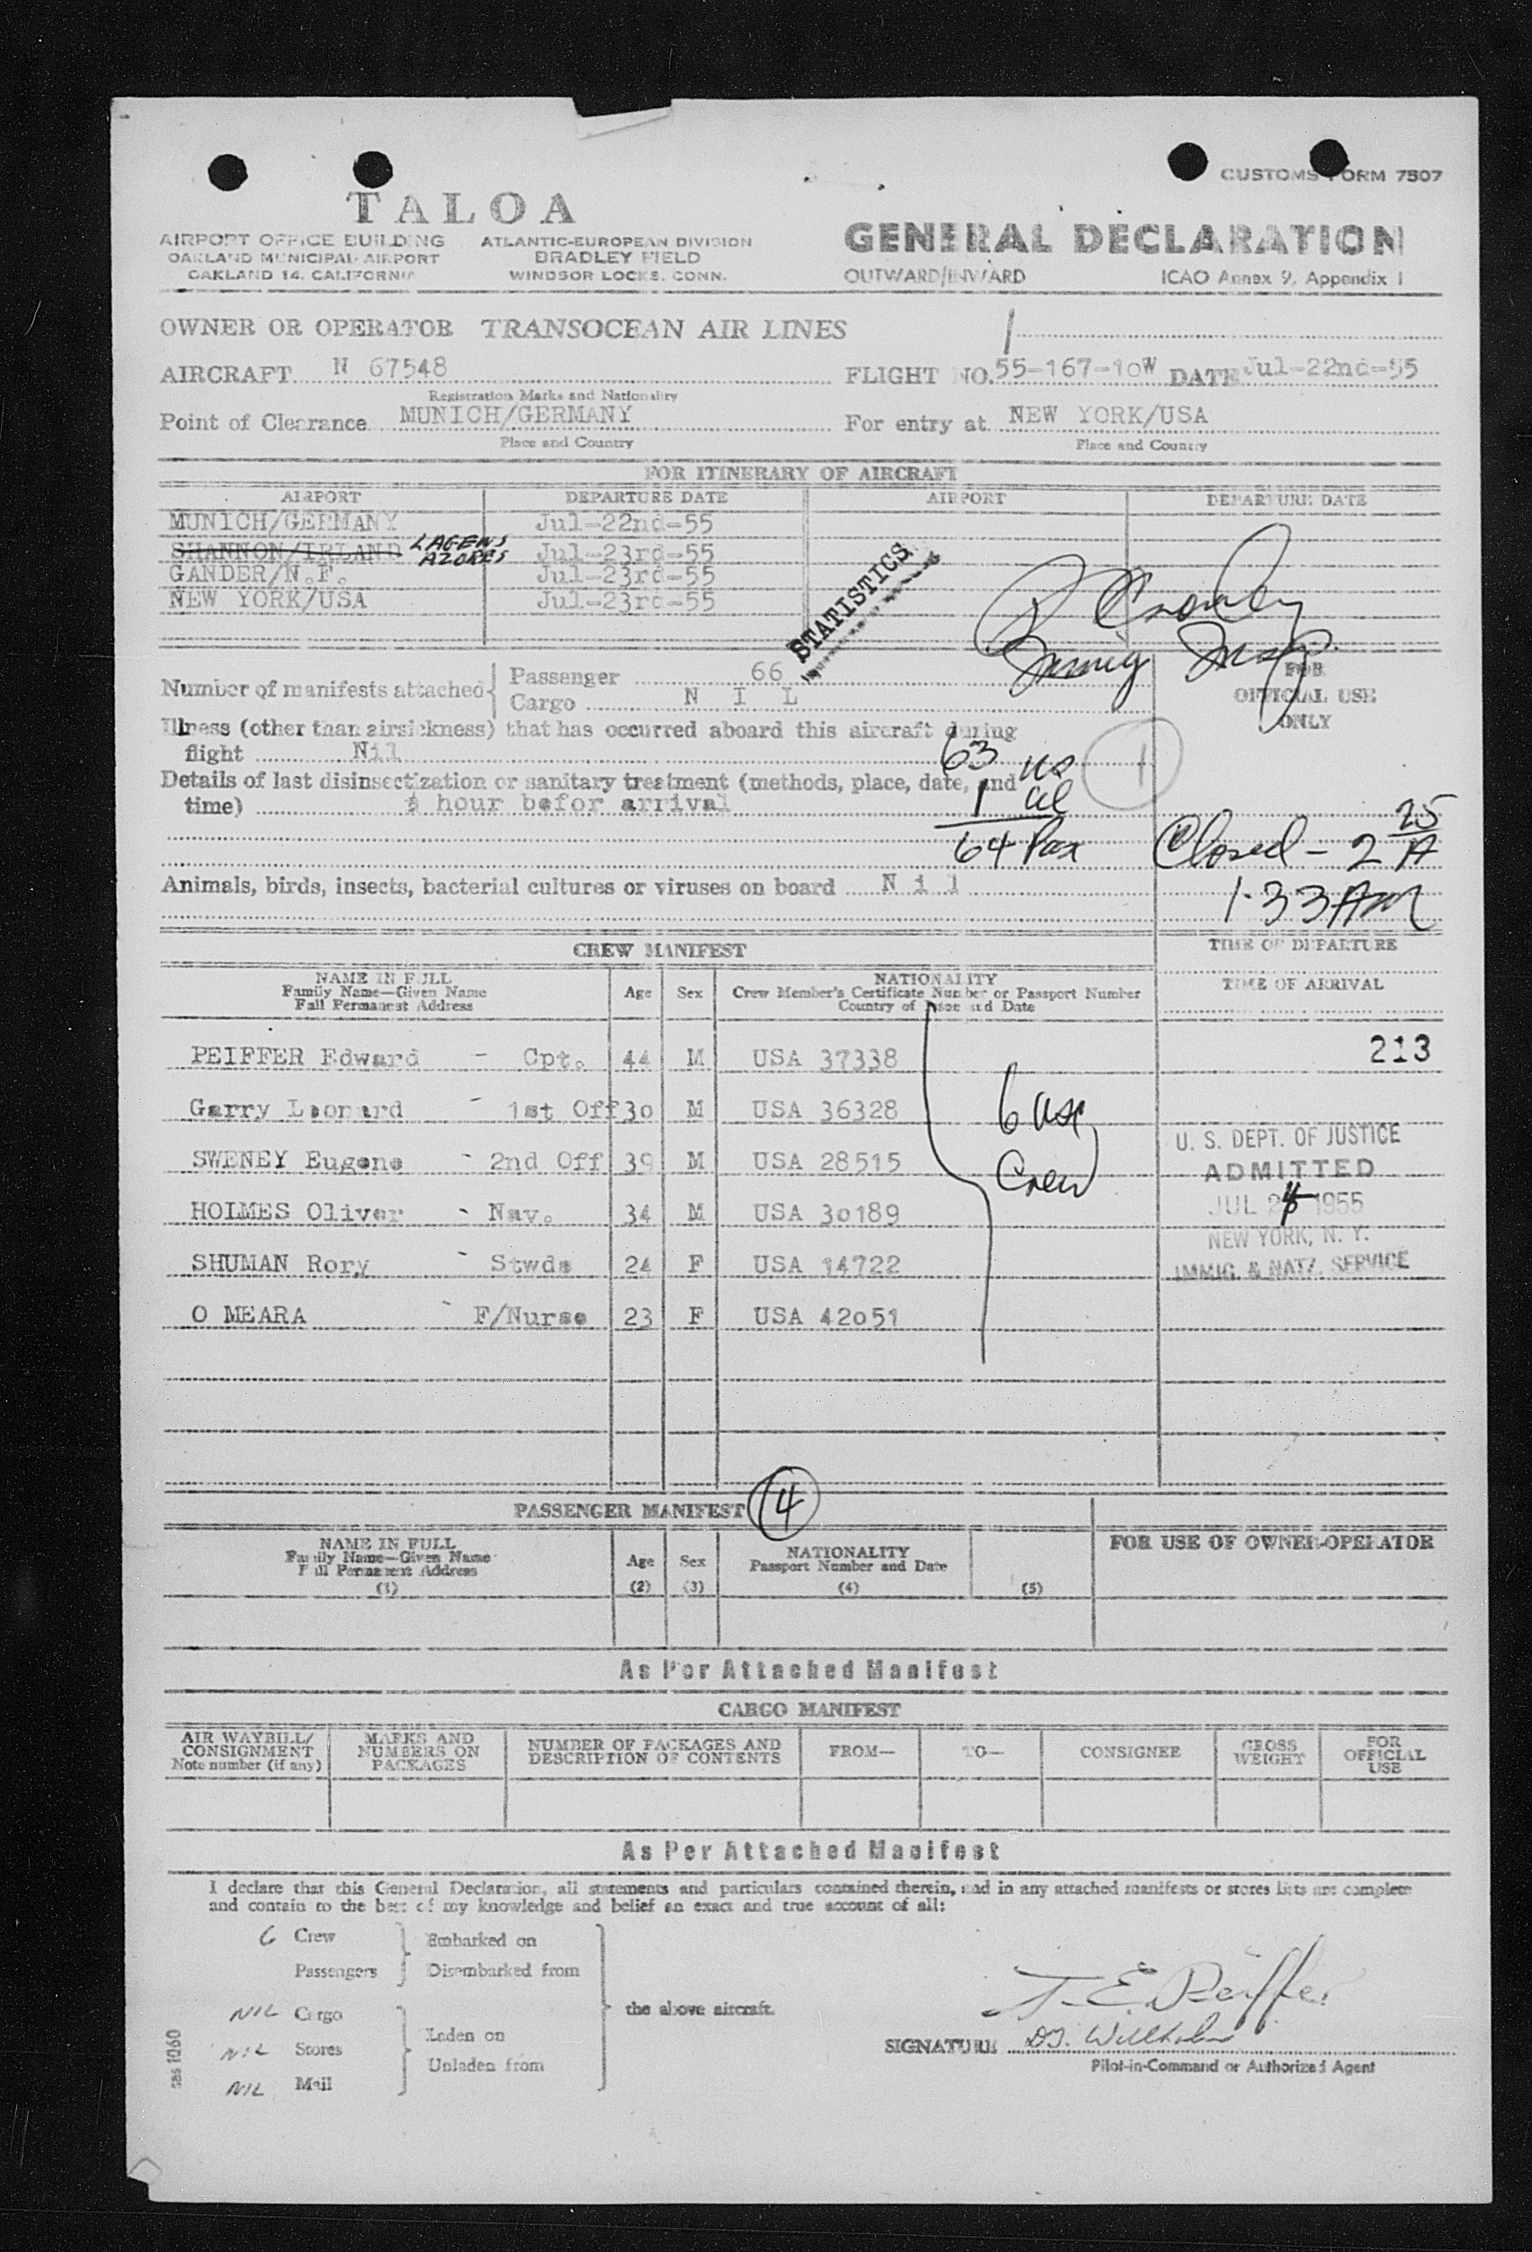 CUSTOMS FORM 7507
TALOA
AIRPORT OFFICE BUILDING
OAKLAND MUNICIPAL AIRPORT
OAKLAND 14, CALIFORNIA
ATLANTIC-EUROPEAN DIVISION
BRADLEY FIELD
WINDSOR LOCKS, CONN.
GENERAL DECLARATION
OUTWARD/INWARD ICAO Annex 9, Appendix 1
OWNER OR OPERATOR TRANSOCEAN AIR LINES
AIRCRAFT N 67548 FLIGHT NO. 55-167-10W DATE Jul-22nd-55
Registration Marks and Nationality
Point of Clearance MUNICH/GERMANY For entry at NEW YORK/USA
Place and Country Place and Country
FOR ITINERARY OF AIRCRAFT
AIRPORT DEPARTURE DATE AIRPORT DEPARTURE DATE
MUNICH/GERMANY Jul-22nd-55
SHANNON/IRLAND LAGENS AZORES Jul-23rd-55
GANDER/N.F. Jul-23rd-55
NEW YORK/USA Jul-23rd-55
STATISTICS
Crowley
Immig Insp
Number of manifests attached Passenger 66
Cargo N I L
FOR
OFFICIAL USE
ONLY
Illness (other than airsickness) that has occurred aboard this aircraft during
flight Nil
63 us
1
Details of last disinsectization or sanitary treatment (methods, place, date, and
time) ½ hour befor arrival
1 al
64 Pax
Closed - 2 25 A
1.33 AM
Animals, birds, insects, bacterial cultures or viruses on board N i l
CREW MANIFEST
TIME OF DEPARTURE
TIME OF ARRIVAL
NAME IN FULL
Family Name—Given Name
Full Permanent Address
Age Sex
NATIONALITY
Crew Member's Certificate Number or Passport Number
Country of Issue and Date
213
PEIFFER Edward - Cpt. 44 M USA 37338
Garry Leonard - 1st Off 30 M USA 36328
SWENEY Eugene - 2nd Off 39 M USA 28515
HOLMES Oliver - Nav. 34 M USA 30189
SHUMAN Rory - Stwds 24 F USA 14722
O MEARA - F/Nurse 23 F USA 42051
6 usc
Crew
U. S. DEPT. OF JUSTICE
ADMITTED
JUL 24 1955
NEW YORK, N. Y.
IMMIG. & NATZ. SERVICE
PASSENGER MANIFEST 14
NAME IN FULL
Family Name—Given Name
Full Permanent Address
(1)
Age
(2)
Sex
(3)
NATIONALITY
Passport Number and Date
(4)
(5)
FOR USE OF OWNER-OPERATOR
As Per Attached Manifest
CARGO MANIFEST
AIR WAYBILL/
CONSIGNMENT
Note number (if any)
MARKS AND
NUMBERS ON
PACKAGES
NUMBER OF PACKAGES AND
DESCRIPTION OF CONTENTS
FROM—
TO—
CONSIGNEE
GROSS
WEIGHT
FOR
OFFICIAL
USE
As Per Attached Manifest
I declare that this General Declaration, all statements and particulars contained therein, and in any attached manifests or stores lists are complete
and contain to the best of my knowledge and belief an exact and true account of all:
6 Crew Embarked on
Passengers Disembarked from
NIL Cargo
the above aircraft.
NIL Stores Laden on
NIL Mail Unladen from
sas 1060
T. E. Peiffer
SIGNATURE
Pilot-in-Command or Authorized Agent